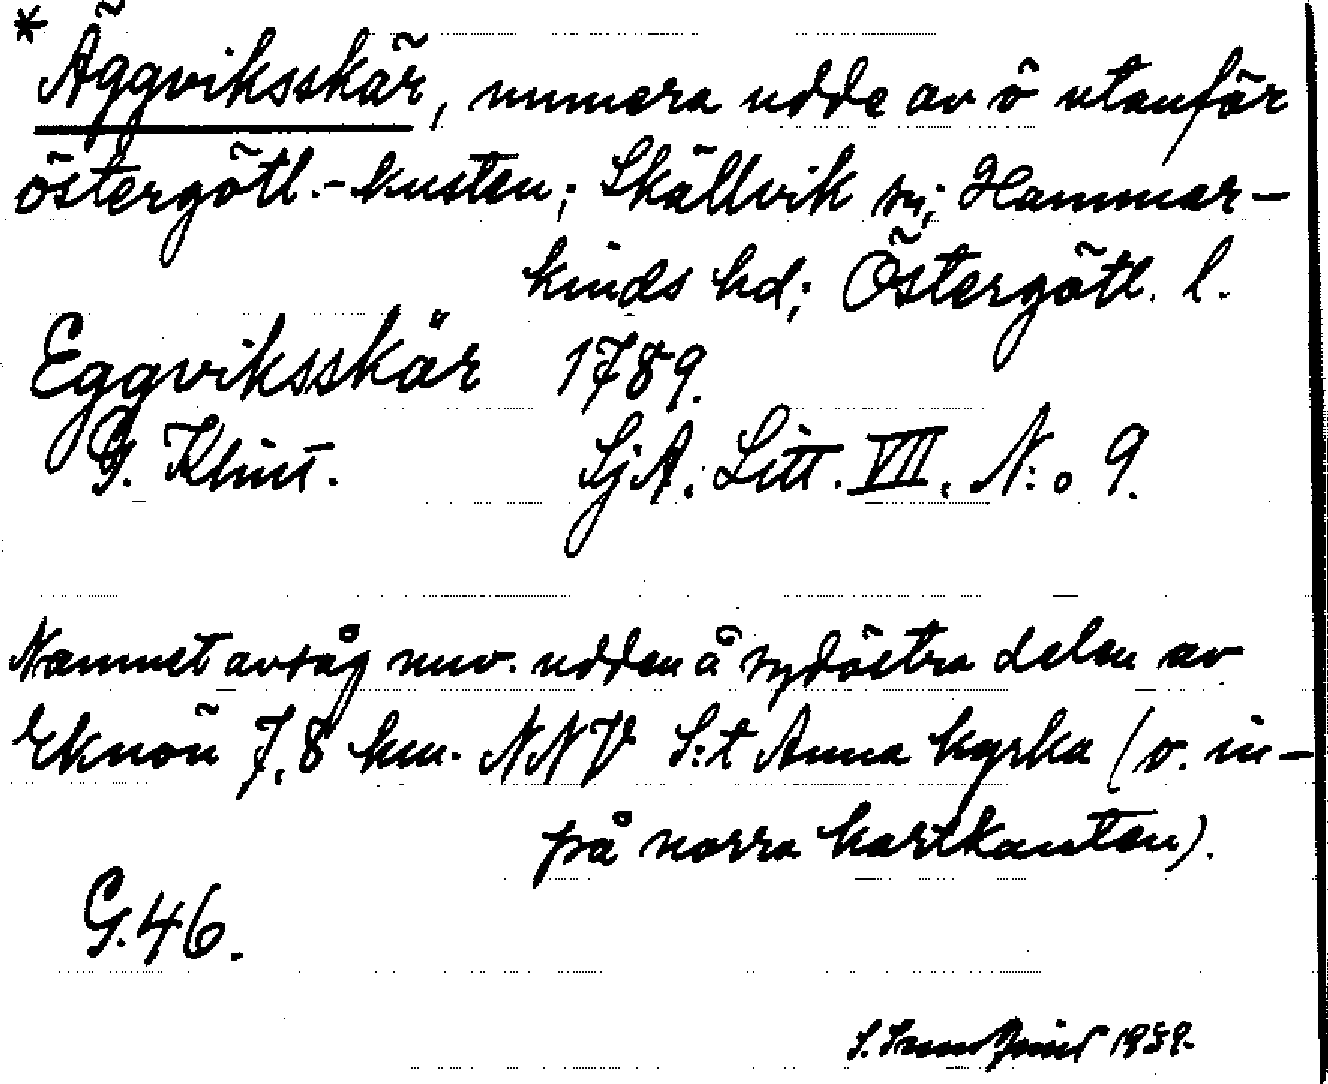 * Äggviksskär, numera udde av ö utanför
östergötl.-kusten; Skällvik sn; Hammar-
kinds hd; Östergötl. l.
Eggviksskär 1789.
G. Klint. SjA. Litt. VII. N:o 9.
Namnet avsåg nuv. udden å sydöstra delen av
Eknön 7,8 km. NNV S:t Anna kyrka (v. in-
på norra kartkanten).
G.46.
S. 1939.